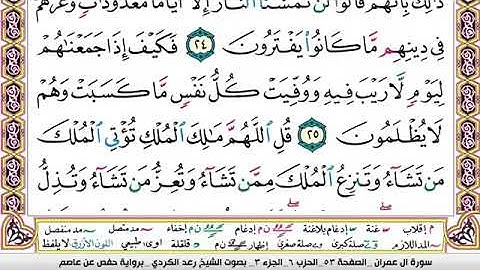 ذَٰلِكَ بِأَنَّهُمْ قَالُوا۟ لَن تَمَسَّنَا ٱلنَّارُ إِلَّآ أَيَّامًا مَّعْدُودَٰتٍ وَغَرَّهُمْ
فِى دِينِهِم مَّا كَانُوا۟ يَفْتَرُونَ ٢٤ فَكَيْفَ إِذَا جَمَعْنَٰهُمْ
لِيَوْمٍ لَّا رَيْبَ فِيهِ وَوُفِّيَتْ كُلُّ نَفْسٍ مَّا كَسَبَتْ وَهُمْ
لَا يُظْلَمُونَ ٢٥ قُلِ ٱللَّهُمَّ مَٰلِكَ ٱلْمُلْكِ تُؤْتِى ٱلْمُلْكَ
مَن تَشَآءُ وَتَنزِعُ ٱلْمُلْكَ مِمَّن تَشَآءُ وَتُعِزُّ مَن تَشَآءُ وَتُذِلُّ
م إقلاب غنة إدغام بلاغنة ن م إدغام ن م إخفاء مد متصل مد منفصل
المد اللازم صلة كبرى صلة صغرى إظهار ن م قلقلة طبيعي اللون الأزرق لا يلفظ
سورة آل عمران _الصفحة ٥٣_ الحزب ٦_ الجزء ٣_ بصوت الشيخ رعد الكردي _برواية حفص عن عاصم